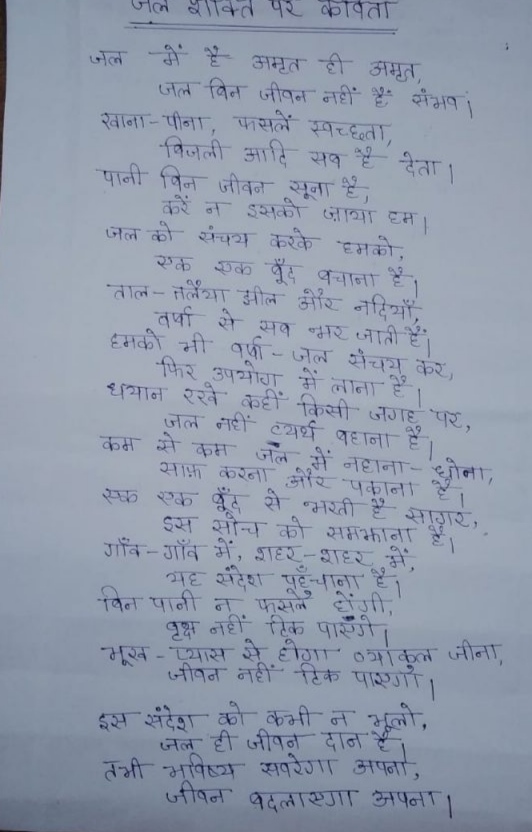 जल शक्ति पर कविता
जल में है अमृत ही अमृत,
जल बिन जीवन नहीं है संभव।
खाना-पीना, फसलें स्वच्छता,
बिजली आदि सब है देता।
पानी बिन जीवन सूना है,
करें न इसको ज़ाया हम।
जल को संचय करके हमको,
एक एक बूँद बचाना है।
ताल-तलैया झील और नदियाँ,
वर्षा से सब भर जाती हैं।
हमको भी वर्षा-जल संचय कर,
फिर उपयोग में लाना है।
धयान रखे कहीं किसी जगह पर,
जल नहीं व्यर्थ बहाना है।
कम से कम जल में नहाना-धोना,
साफ़ करना और पकाना है।
एक एक बूँद से भरती है सागर,
इस सोच को समझाना है।
गाँव-गाँव में, शहर-शहर में,
यह संदेश पहुँचाना है।
बिन पानी न फसलें होंगी,
वृक्ष नहीं टिक पाएंगे।
भूख-प्यास से होगा व्याकुल जीना,
जीवन नहीं टिक पाएगा।
इस संदेश को कभी न भूलो,
जल ही जीवन दान है।
तभी भविष्य सवरेगा अपना,
जीवन बदलाएगा अपना।